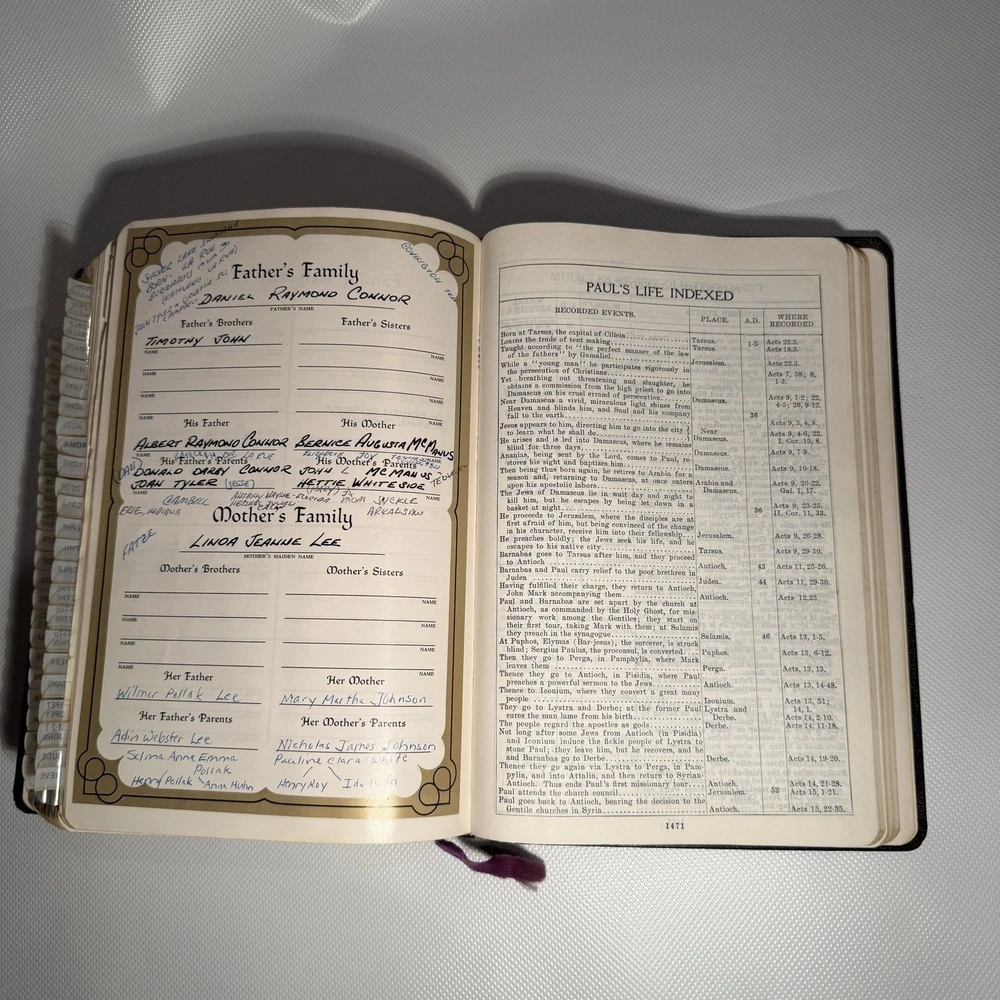 Father's Family
DANIEL RAYMOND CONNOR
FATHER'S NAME
Father's Brothers
Father's Sisters
TIMOTHY JOHN
NAME
NAME
NAME
NAME
NAME
NAME
NAME
NAME
His Father
His Mother
ALBERT RAYMOND CONNOR
BERNICE AUGUSTA MCMANUS
NAME
His Father's Parents
His Mother's Parents
DONALD DARBY CONNOR
JOHN L MCMANUS
JOAN TYLER [JESSE]
HETTIE WHITESIDE
NAME
NAME
ARKANSAW
Mother's Family
LINDA JEANNE LEE
MOTHER'S MAIDEN NAME
Mother's Brothers
Mother's Sisters
NAME
NAME
NAME
NAME
NAME
NAME
Her Father
Her Mother
Wilmer Pollak Lee
Mary Martha Johnson
Her Father's Parents
Her Mother's Parents
Adin Webster Lee
Nicholas James Johnson
Selma Anna Emma
Pauline Clara White
Pollak
Henry Pollak Anna Huhn
Henry Roy
PAUL'S LIFE INDEXED
RECORDED EVENTS. PLACE. A.D. WHERE RECORDED.
Born at Tarsus, the capital of Cilicia Tarsus. 1-5 Acts 22.3.
Learns the trade of tent making Tarsus. Acts 18.3.
Taught according to "the perfect manner of the law
of the fathers" by Gamaliel Jerusalem. Acts 22.3.
While a "young man" he participates vigorously in
the persecution of Christians Acts 7, 58; 8,
1-3.
Yet breathing out threatening and slaughter, he
obtains a commission from the high priest to go into
Damascus on his cruel errand of persecution Damascus. Acts 9, 1-2; 22,
4-5; 26, 9-12.
Near Damascus a vivid, miraculous light shines from
Heaven and blinds him, and Saul and his company
fall to the earth 36 Acts 9, 3, 4, 8.
Jesus appears to him, directing him to go into the city
to learn what he shall do Near
Damascus. Acts 9, 4-6, 22.
I. Cor. 15, 8.
He arises and is led into Damascus, where he remains
blind for three days Acts 9, 7-9.
Ananias, being sent by the Lord, comes to Paul, re-
stores his sight and baptizes him Acts 9, 10-18.
Then being thus born again, he retires to Arabia for a
season and, returning to Damascus, at once enters
upon his apostolic labors Arabia and
Damascus. Acts 9, 20-22.
Gal. 1, 17.
The Jews of Damascus lie in wait day and night to
kill him, but he escapes by being let down in a
basket at night 36 Acts 9, 23-25.
II. Cor. 11, 33.
He proceeds to Jerusalem, where the disciples are at
first afraid of him, but being convinced of the change
in his character, receive him into their fellowship Jerusalem. Acts 9, 26-28.
He preaches boldly; the Jews seek his life, and he
escapes to his native city Tarsus. Acts 9, 29-30.
Barnabas goes to Tarsus after him, and they proceed
to Antioch Antioch. 43 Acts 11, 25-26.
Barnabas and Paul carry relief to the poor brethren in
Judea Judea. 44 Acts 11, 29-30.
Having fulfilled their charge, they return to Antioch,
John Mark accompanying them Antioch. Acts 12,25.
Paul and Barnabas are set apart by the church at
Antioch, as commanded by the Holy Ghost, for mis-
sionary work among the Gentiles; they start on
their first tour, taking Mark with them; at Salamis
they preach in the synagogue Salamis. 46 Acts 13, 1-5.
At Paphos, Elymas (Bar-jesus), the sorcerer, is struck
blind; Sergius Paulus, the proconsul, is converted Paphos. Acts 13, 6-12.
Then they go to Perga, in Pamphylia, where Mark
leaves them Perga. Acts, 13, 13.
Thence they go to Antioch, in Pisidia, where Paul
preaches a powerful sermon to the Jews Antioch. Acts 13, 14-48.
Thence to Iconium, where they convert a great many
people Iconium. Acts 13, 51;
14, 1.
They go to Lystra and Derbe; at the former Paul
cures the man lame from his birth Lystra and
Derbe. Acts 14, 2-10.
The people regard the apostles as gods Derbe. Acts 14, 11-18.
Not long after some Jews from Antioch (in Pisidia)
and Iconium induce the fickle people of Lystra to
stone Paul; they leave him, but he recovers, and he
and Barnabas go to Derbe Derbe. Acts 14, 19-20.
Thence they go again via Lystra to Perga, in Pam-
pylia, and into Attalia, and then return to Syrian
Antioch. Thus ends Paul's first missionary tour Antioch. Acts 14, 21-28.
Paul attends the church council Jerusalem. 52 Acts 15, 1-21.
Paul goes back to Antioch, bearing the decision to the
Gentile churches in Syria Antioch. Acts 15, 22-35.
1471